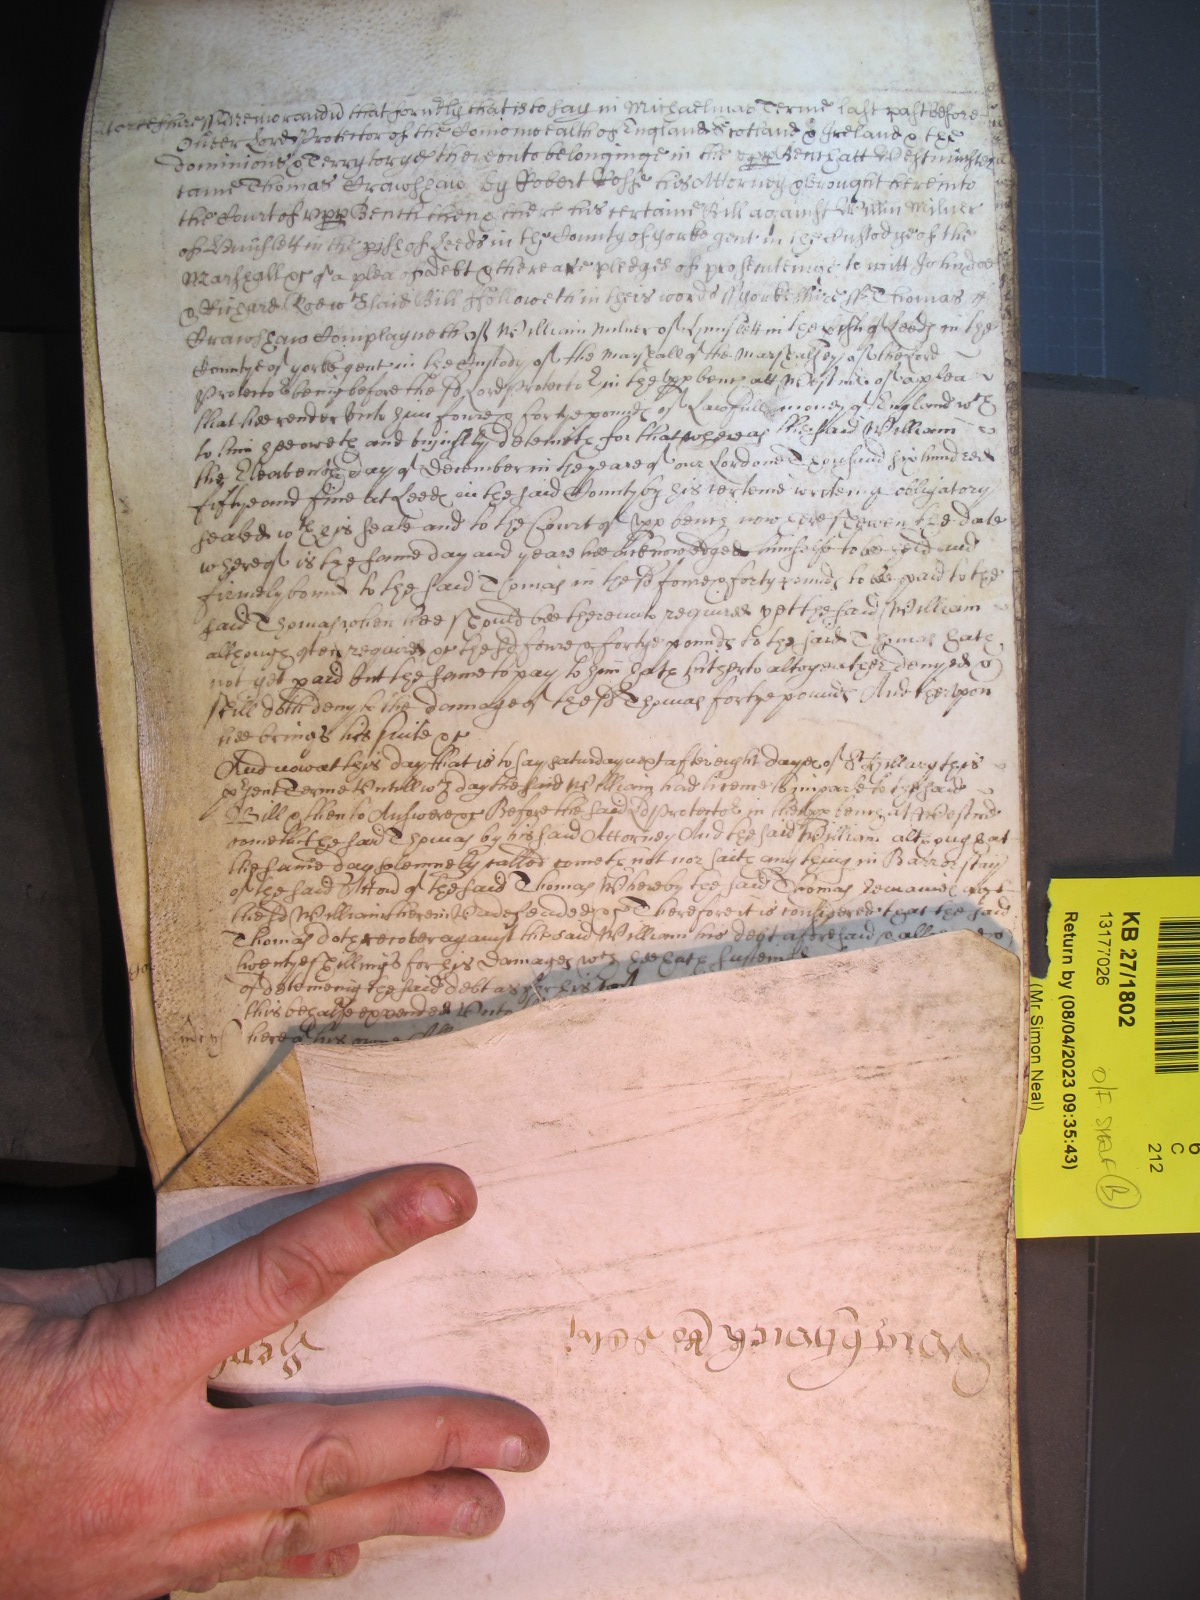 Memorandd that formtly that is to say in Michaelmas Terme last past before
Oliver Lord Protector of the Comonwealth of England Scotland & Ireland & the
dominions & Terrytoryes thereunto belonginge in the upp Bench att Westminster
came Thomas Crawshaw by Robert Rosse his Attorney & brought here into
the Court of upp Bench then & there his certaine Bill against Willm Milner
of Hunslett in the pish of Leeds in the County of yorke gent in the Custodye of the
Marshall &c of a plea of Debt & there are pledges of prosecutinge to witt John doe
& Richard Roe wch said Bill followeth in theis words ss yorkshire ss Thomas
Crawshaw Complayneth of William Milner of Hunslett in the pish of Leeds in the
County of yorke gent in the Custody of the Marshall of the Marshalsey of the Lord
Protector being before the sd Lord Protector in the upp bench att Westmr of a plea
that hee render vnto him foure & fortye pounds of Lawfull money of England wch
to him hee oweth and vniustly deteineth for that whereas the said William
the Eleaventh day of December in the yeare of our Lord one Thousand six hundred
fiftye and fiue at Leeds in the said County by his certeine writeing obligatory
sealed wth his seale and to the Court of upp bench now here shewen the date
whereof is the same day and yeare hee acknowledged himselfe to be held and
firmely bound to the said Thomas in the sd foure & forty pounds to bee paid to the
said Thomas when hee should bee thereunto required yett the said William
although often required &c the sd foure & fortye pounds to the said Thomas hath
not yet paid but the same to pay to him hath hitherto altogeather denyed &
still doth deny to the damage of the sd Thomas fortye pounds And therevpon
hee brings his suite &c
And now at this day that is to say Saturday next after eight dayes of St Hillary this
psent Terme vntill wch day the said William had licence to imparle to the said
Bill & then to Answere &c Before the said Ld Protector in the upp bench at Westmr
cometh the said Thomas by his said Attorney And the said William although at
the same day solemnely called cometh not nor saith any thing in Barr & stay
of the said Accon of the said Thomas Whereby the said Thomas remaineth agt
the sd William therein vndefended &c Therefore it is considered that the said
Thomas doth recover against the said William his debt aforesaid & allsoe
twentye shillings for his Damages wch hee hath susteined
of deteineing the said debt as for his
this behalfe expended vnto
here of his owne
KB 27/1802
13177026
Return by (08/04/2023 09:35:43)
(Mr Simon Neal)
6
C
212